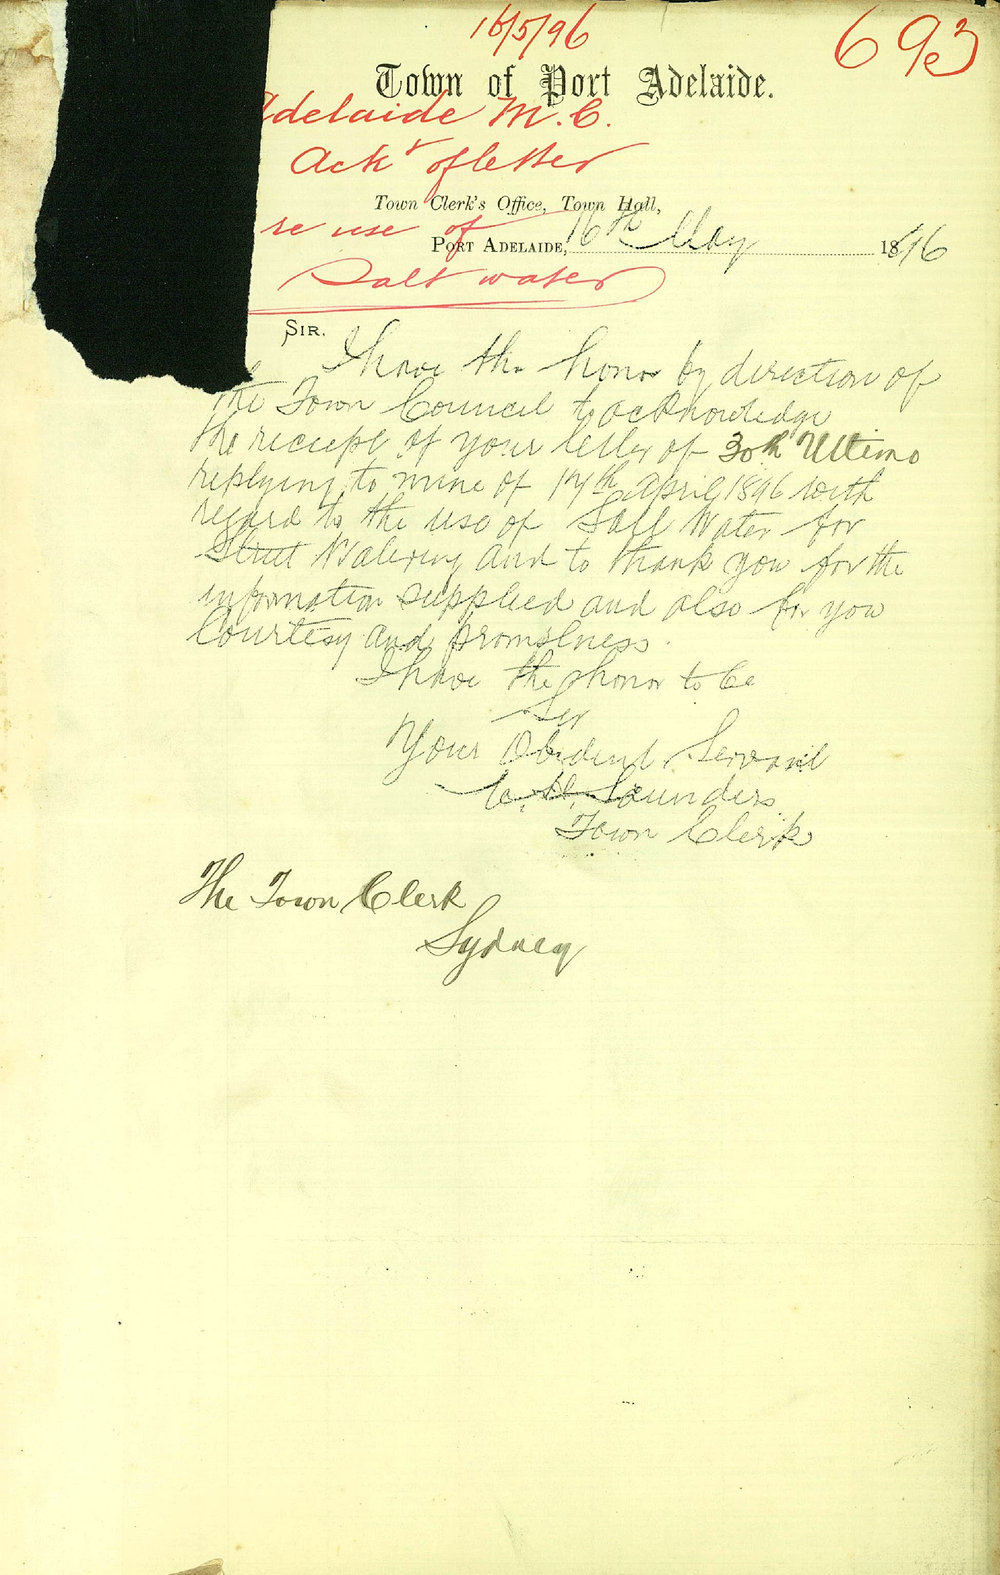 16/5/96
693
Town of Port Adelaide.
Adelaide M.C.
Ackt of letter
Town Clerk's Office, Town Hall,
re use of
Port Adelaide, 16th May 1896
Salt water
Sir.
I have the honor by direction of
the Town Council to acknowledge
the receipt of your letter of 30th Ultimo
replying to mine of 17th April 1896 with
regard to the use of Salt Water for
Street Watering and to thank you for the
information supplied and also for you
Courtesy and promptness.
I have the honor to be
Sir
Your Obedient Servant
C. H. Saunders
Town Clerk
The Town Clerk
Sydney